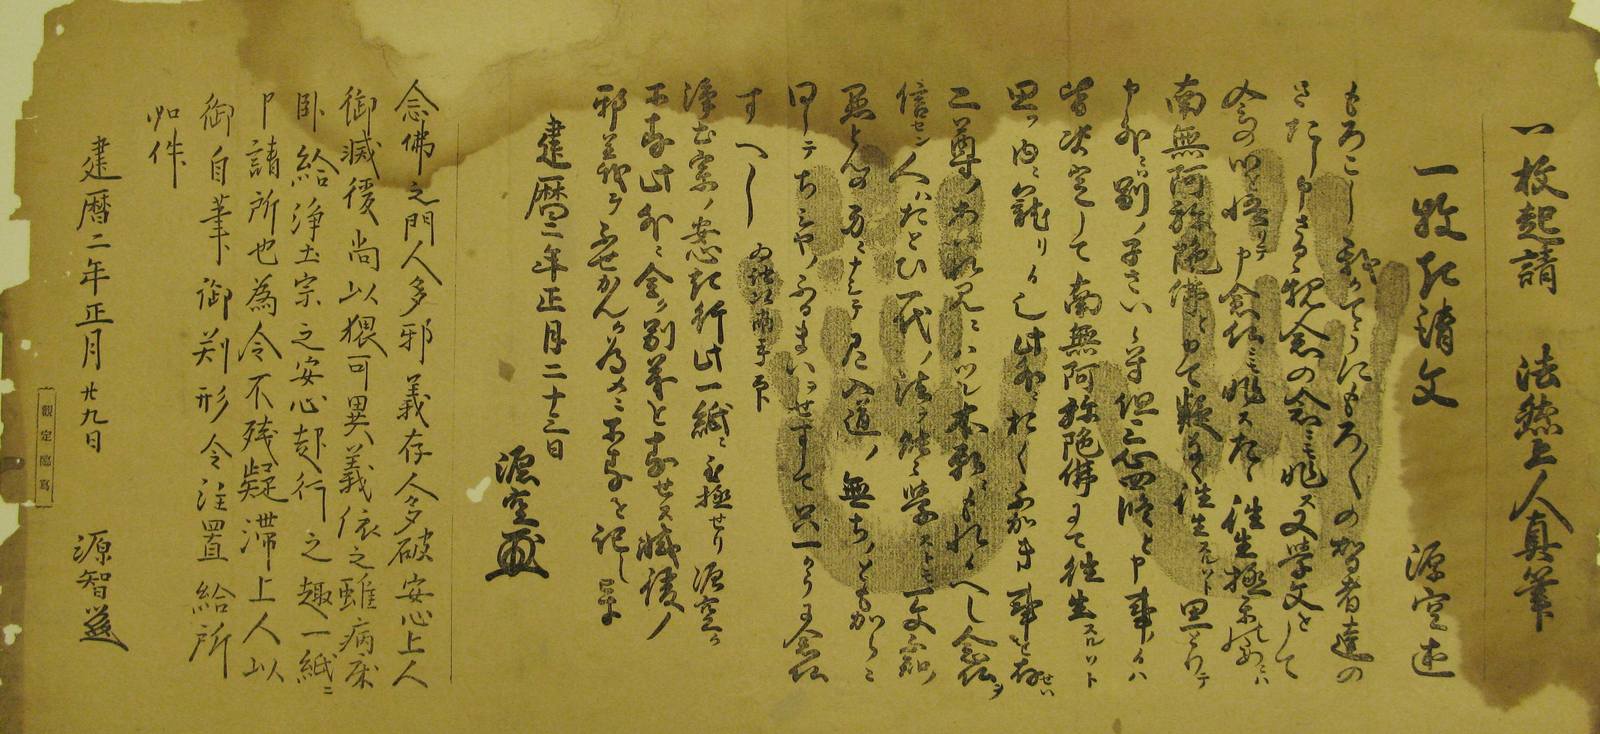 一枚起請 法然上人真筆
一枚起請文 源空述
もろこし我かてうにもろ〳〵の智者達の
さたし申さるゝ観念の念ニモ非ス又学文をして
念の心を悟リテ申念仏ニモ非スたゝ往生極楽のためニハ
南無阿弥陀佛と申て疑なく往生スルソト思とりテ
申外ニハ別ノ子さい候はす但三心四修と申事ノ候ハ
皆決定して南無阿弥陀佛にて往生スルソト
思フ内ニ籠リ候也此外ニおくふかき事を存せハ
二尊ノあはれみニハツレ本願ニもれ候へし念仏ヲ
信セン人ハたとひ一代ノ法ヲ能ゝ学ストモ一文不知ノ
愚とんの身ニナシテ尼入道ノ無ちノともからニ
同シテちシヤノふるまいヲせすして只一かうに念仏
すへし
為証以両手印
浄土宗ノ安心起行此一紙ニ至極せり源空カ
所存此外ニ全ク別義を存せス滅後ノ
邪義ヲふせかんカ為メニ所存を記し畢
建暦二年正月二十三日
源空
念佛之門人多邪義存人多破安心上人
御滅後尚以猥可異義依之雖病床
臥給浄土宗之安心起行之趣一紙ニ
申請所也為令不残疑滞上人以
御自筆御判形令注置給所
如件
建暦二年正月廿九日 源智
観定臨写